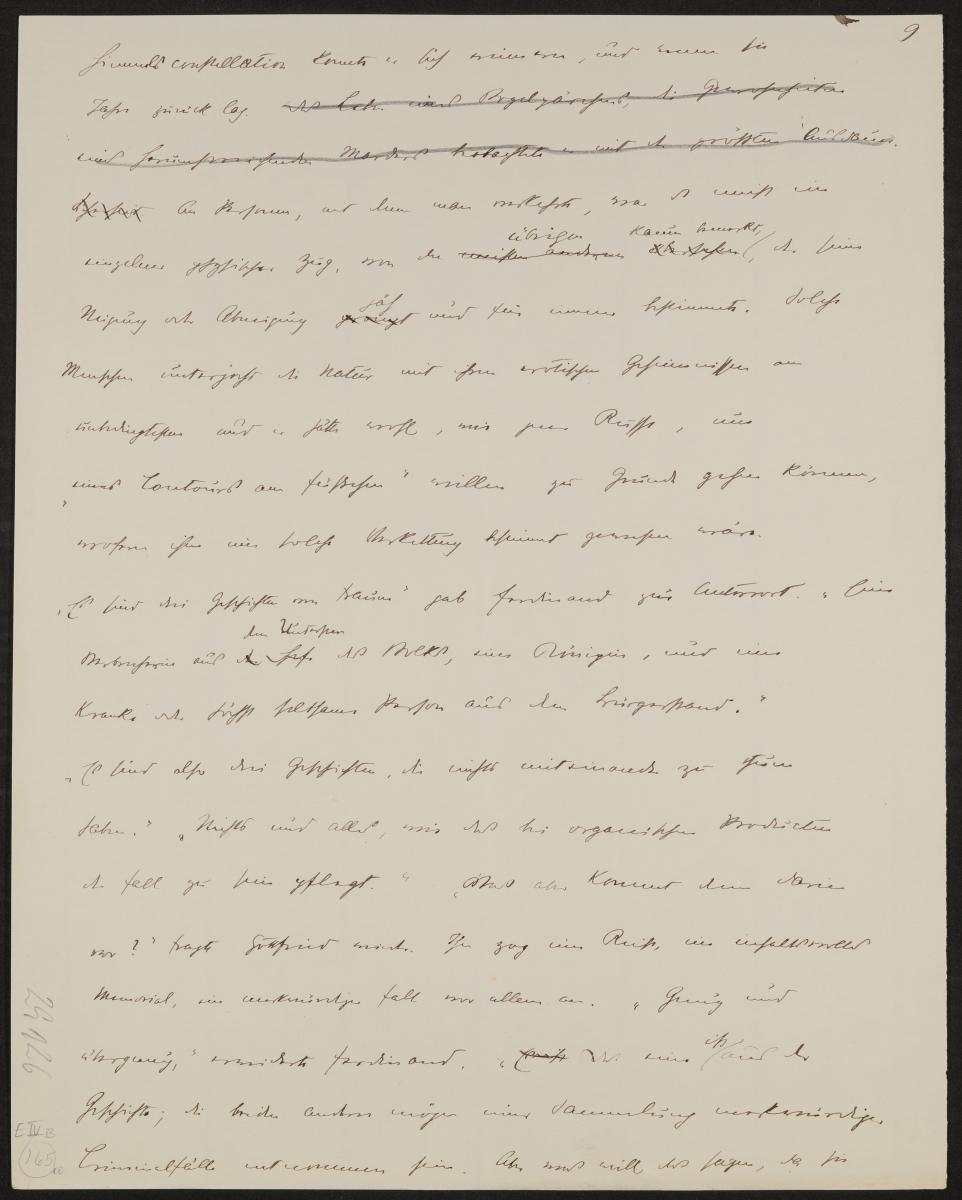 9
Himmelsconstellation konnte er sich erinnern, und wenn sie
Jahre zurück lag. das Leben eines Vogelpärchens, die Gewohnheiten
eines herumstreichenden Marders beobachtete er mit der größten Ausdauer.
An Personen, mit denen man verkehrte, war es meist ein
übrigen kaum bemerkt,
einzelner physischer Zug, von den meisten anderen übersehen, der seine
jäh
Neigung oder Abneigung und für immer bestimmte. Solche
Menschen unterjocht die Natur mit ihren erotischen Geheimnissen am
unbedingtesten und er hätte wohl, wie jener Russe, um
„eines Contours am Füßchen“ willen zu Grunde gehen können,
wofern ihm eine solche Verkettung bestimmt gewesen wäre.
„Es sind drei Geschichten von Frauen“ gab Ferdinand zur Antwort. „Eine
den Untersten
Verbrecherin aus der Hefe des Volks, eine Königin, und eine
kranke oder höchst seltsame Person aus dem Bürgerstand.“
„Es sind also drei Geschichten, die nichts miteinander zu thun
haben.“ „Nichts und alles, wie das bei organischen Producten
der Fall zu sein pflegt.“ „Was aber kommt denn darin
vor?“ fragte Gottfried wieder. Ihn zog eine Reise, ein inhaltsvolles
Memorial, ein merkwürdiger Fall vor allem an. „Genug und
ist
übergenug,“ erwiderte Ferdinand. „ das eine aus der
Geschichte; die beiden andern mögen einer Sammlung merkwürdiger
Criminalfälle entnommen sein. Aber was will das sagen, da sie
29126
E IV B
165